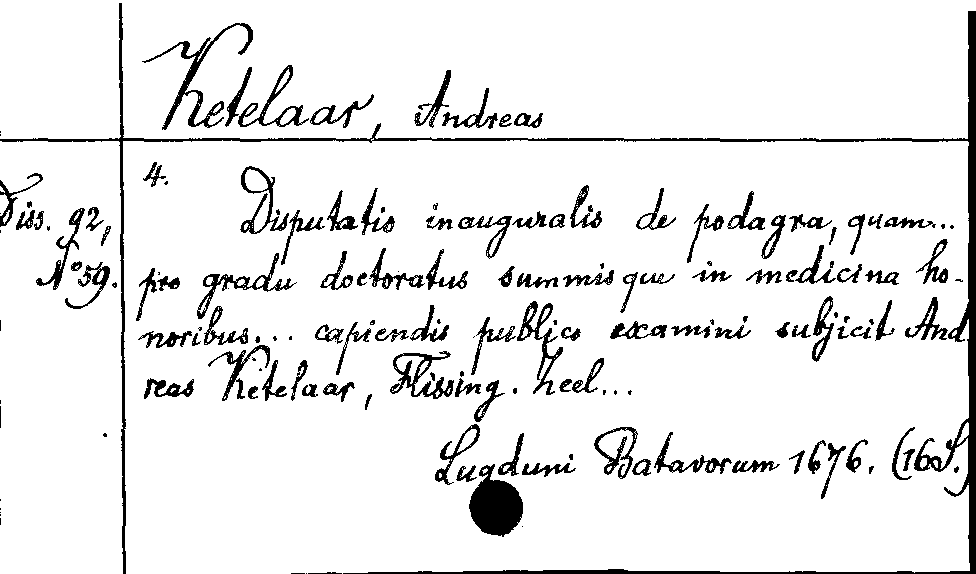 Ketelaar, Andreas
4.
Diss. 92,
N° 59.
Disputatio inauguralis de podagra, quam...
pro gradu doctoratus summisque in medicina ho-
noribus... capiendis publico examini subjicit And
reas Ketelaar, Flissing. Zeel...
Lugduni Batavorum 1676. (16 S.)